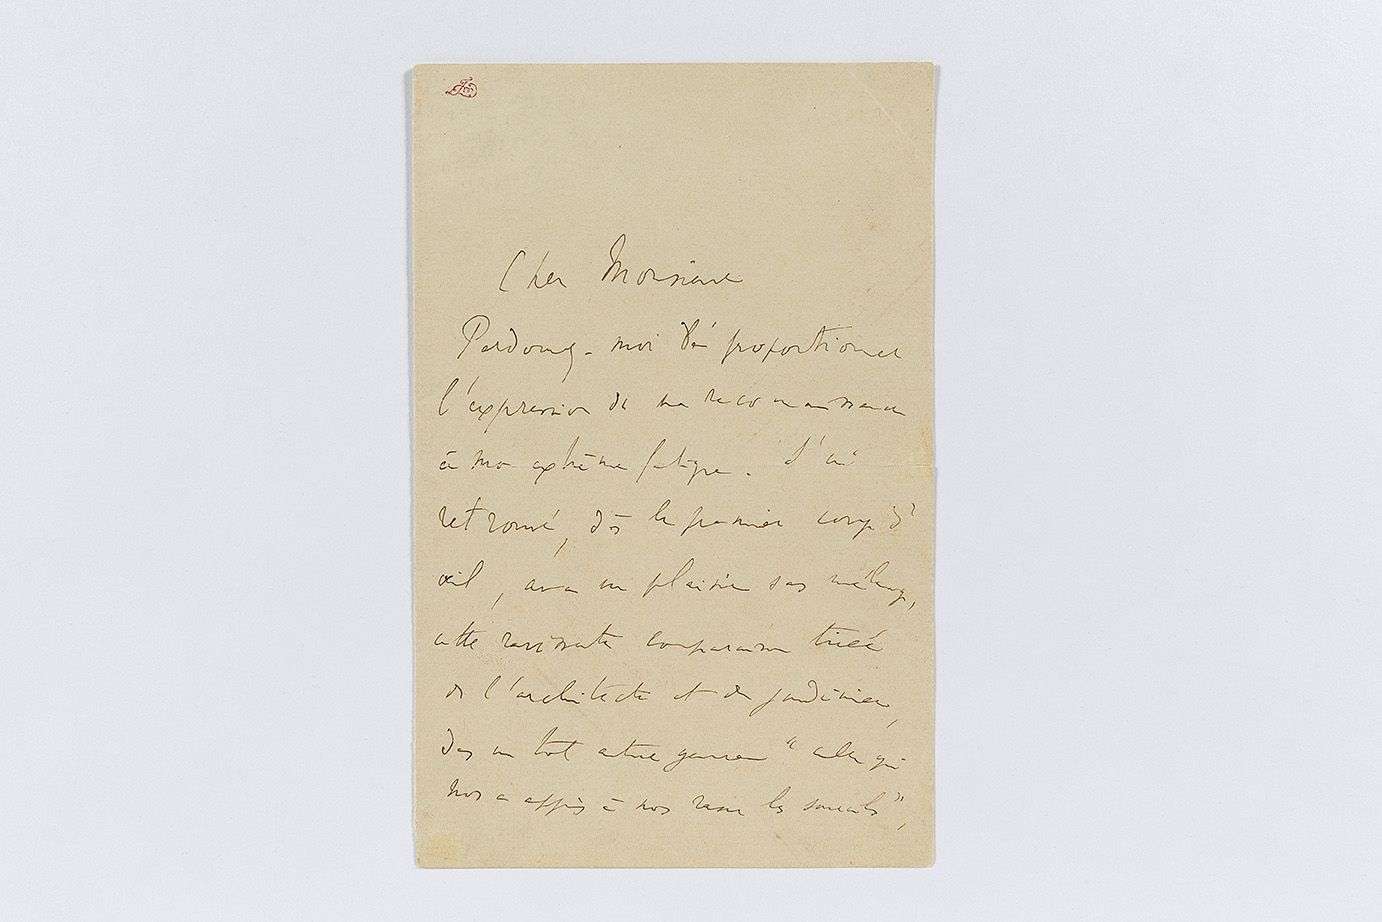 Cher Monsieur
Pardonnez-moi de proportionner
l'expression de ma reconnaissance
à mon extrême fatigue. J'ai
retrouvé, dès le premier coup d'
œil, avec un plaisir sans mélange,
cette ravissante comparaison tirée
de l'architecte et du jardinier,
dans un tout autre genre "celui qui
nous a appris à nous raser les sourcils",